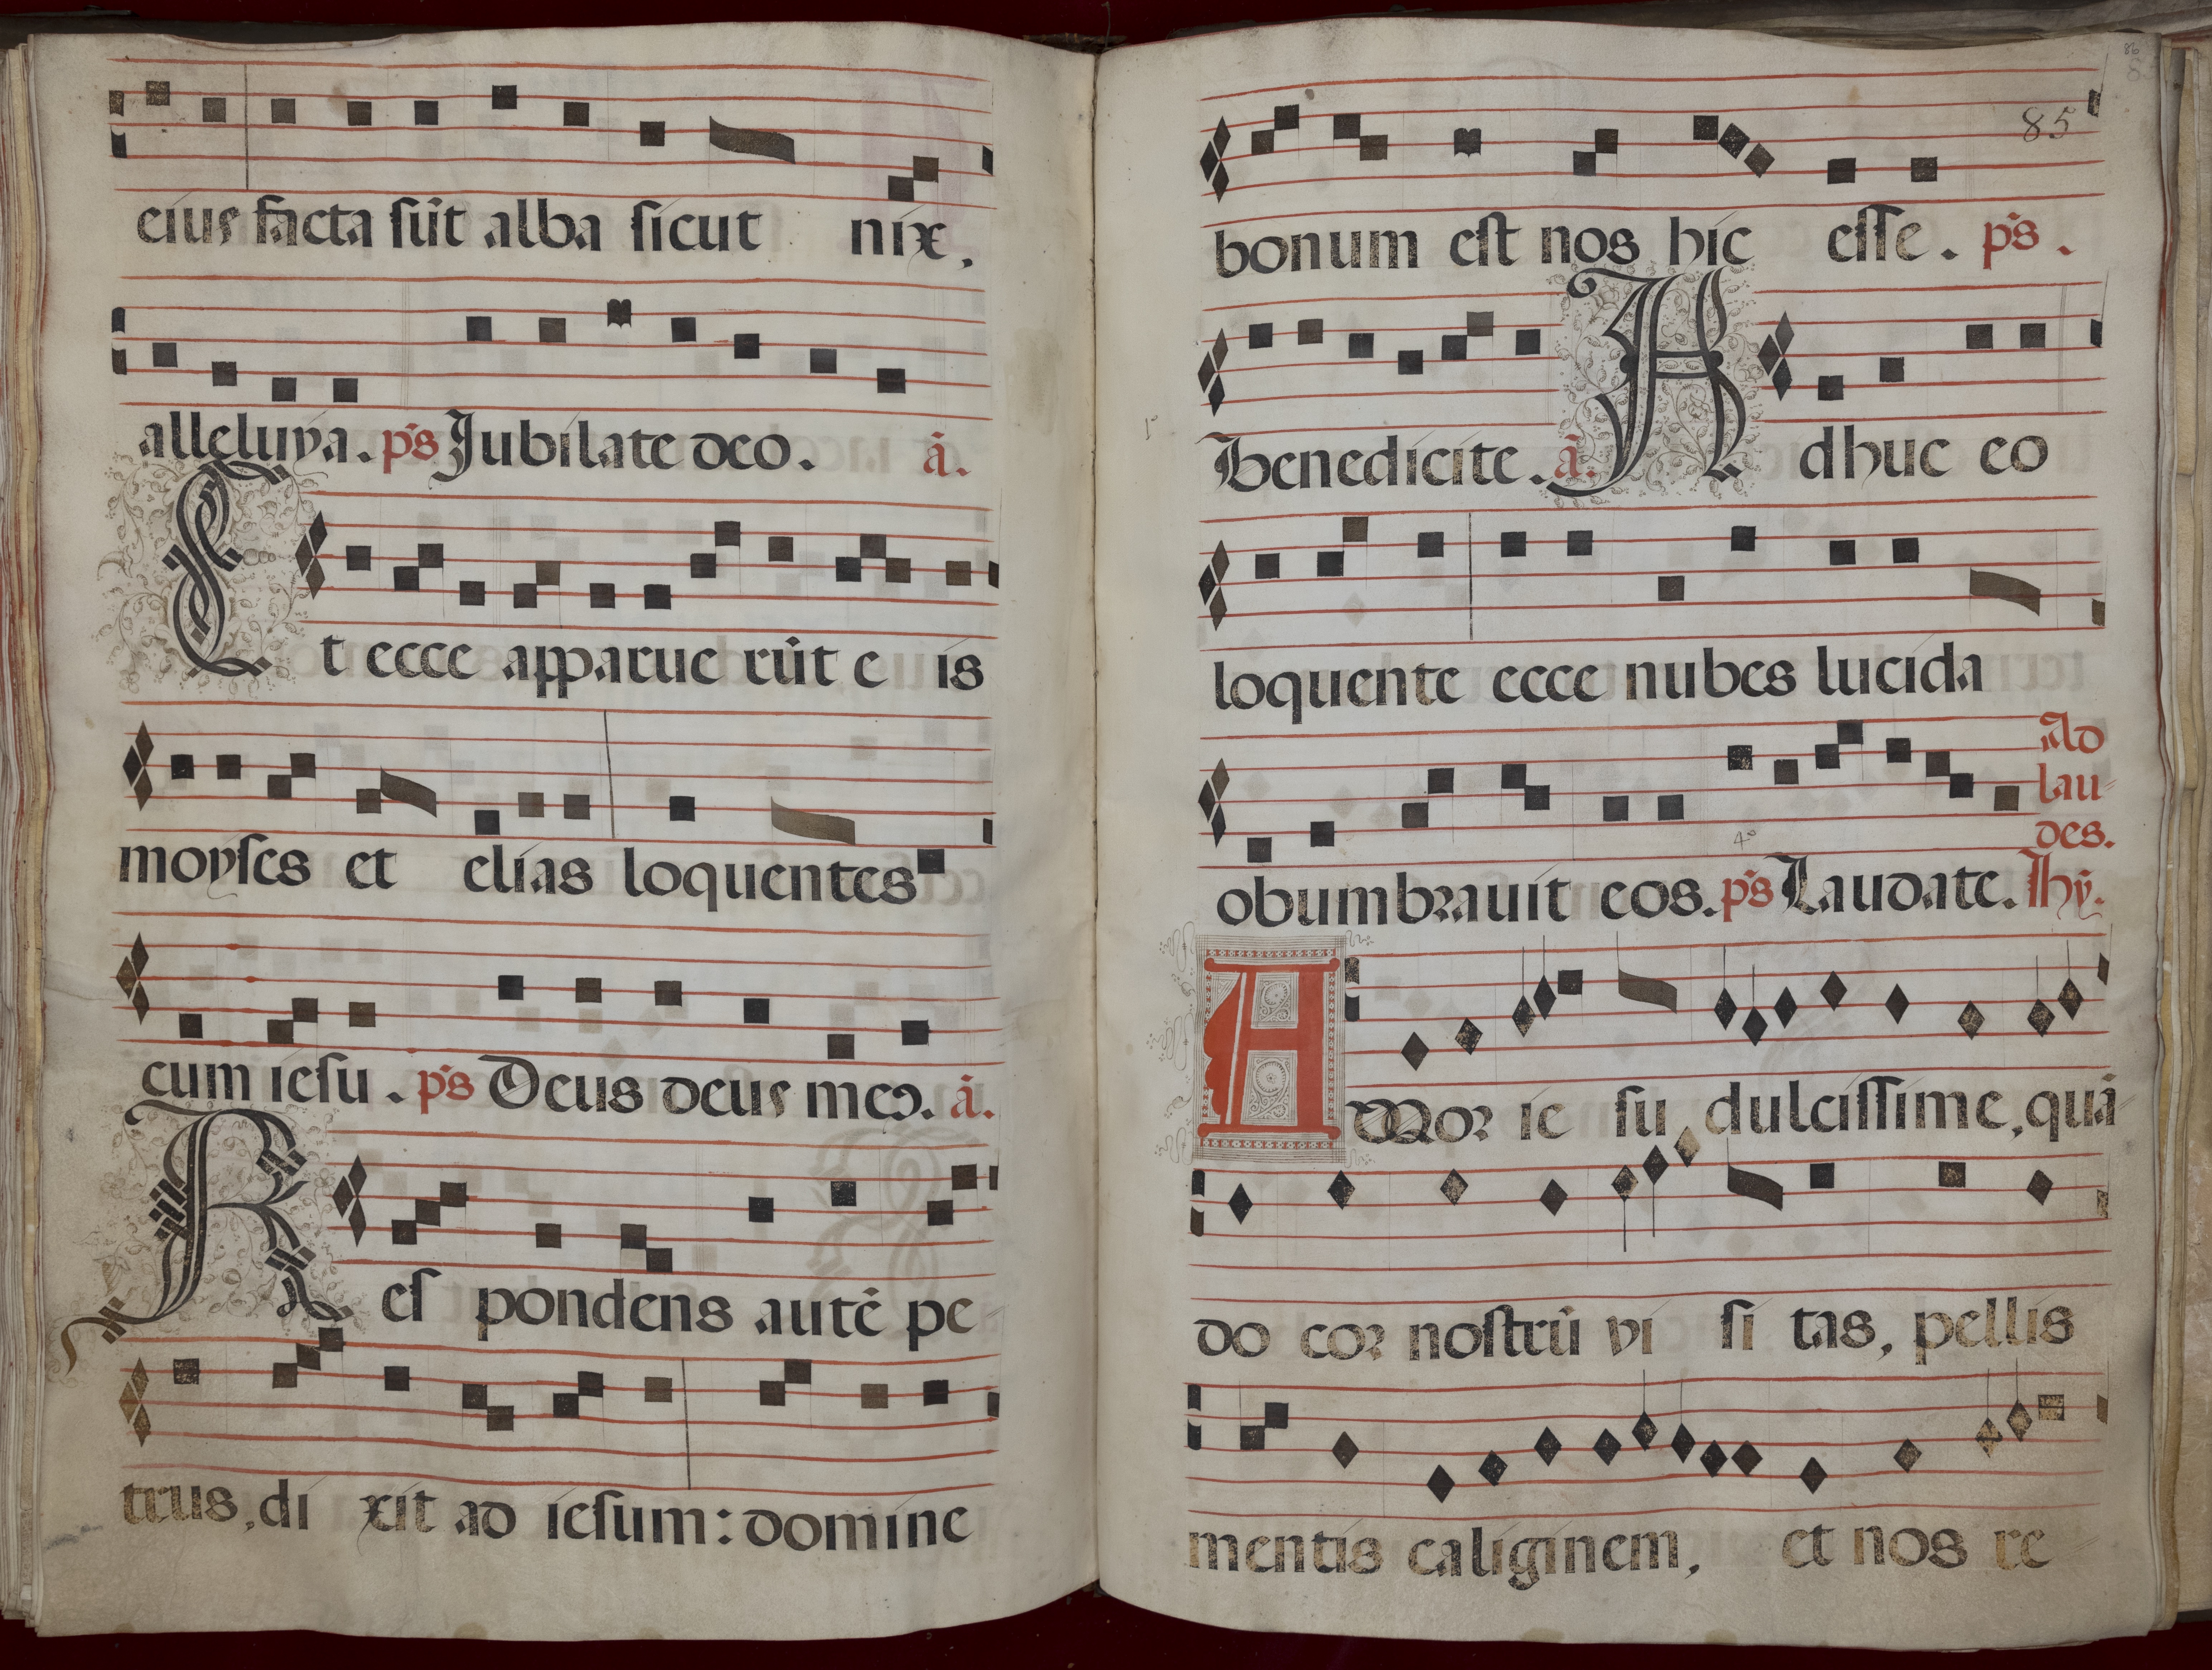 eius facta sūt alba sicut nix.
alleluya. ps Jubilate deo. ā.
Et ecce apparue rūt e is
moyses et elias loquentes
cum iesu. ps Deus deus meꝰ. ā.
Res pondens autē pe
trus, di xit ad iesum: domine
85
bonum est nos hic esse. ps.
Benedicite. ā. Adhuc eo
loquente ecce nubes lucida
Ad
lau-
des.
obumbrauit eos. ps Laudate. Hȳ.
AMor ie su dulcissime, quā-
do cor nostrū vi si tas, pellis
mentis caliginem, et nos re